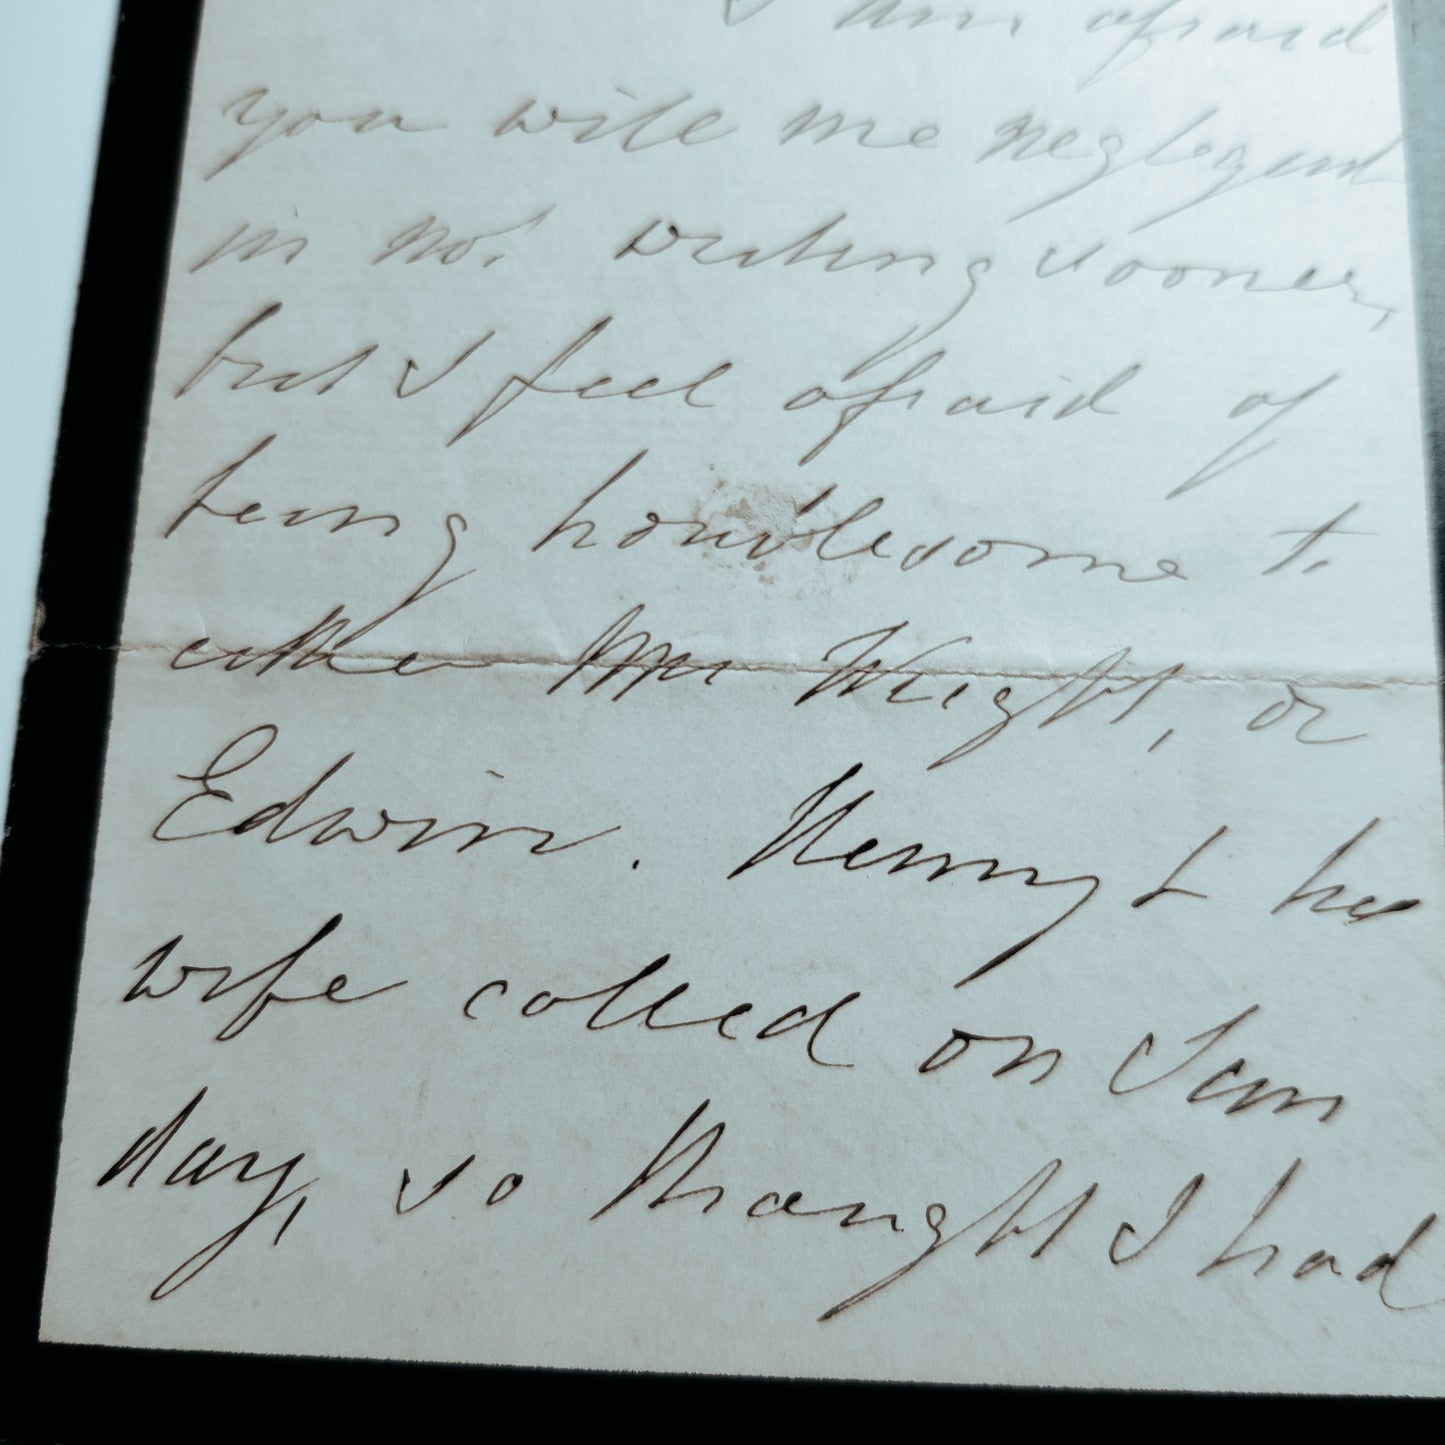 I am afraid
you will me neglegent
in not writing sooner,
but I feel afraid of
being troublesome to
either Mr Wright, or
Edwin. Henry & his
wife called on Sun
day, so thought I had